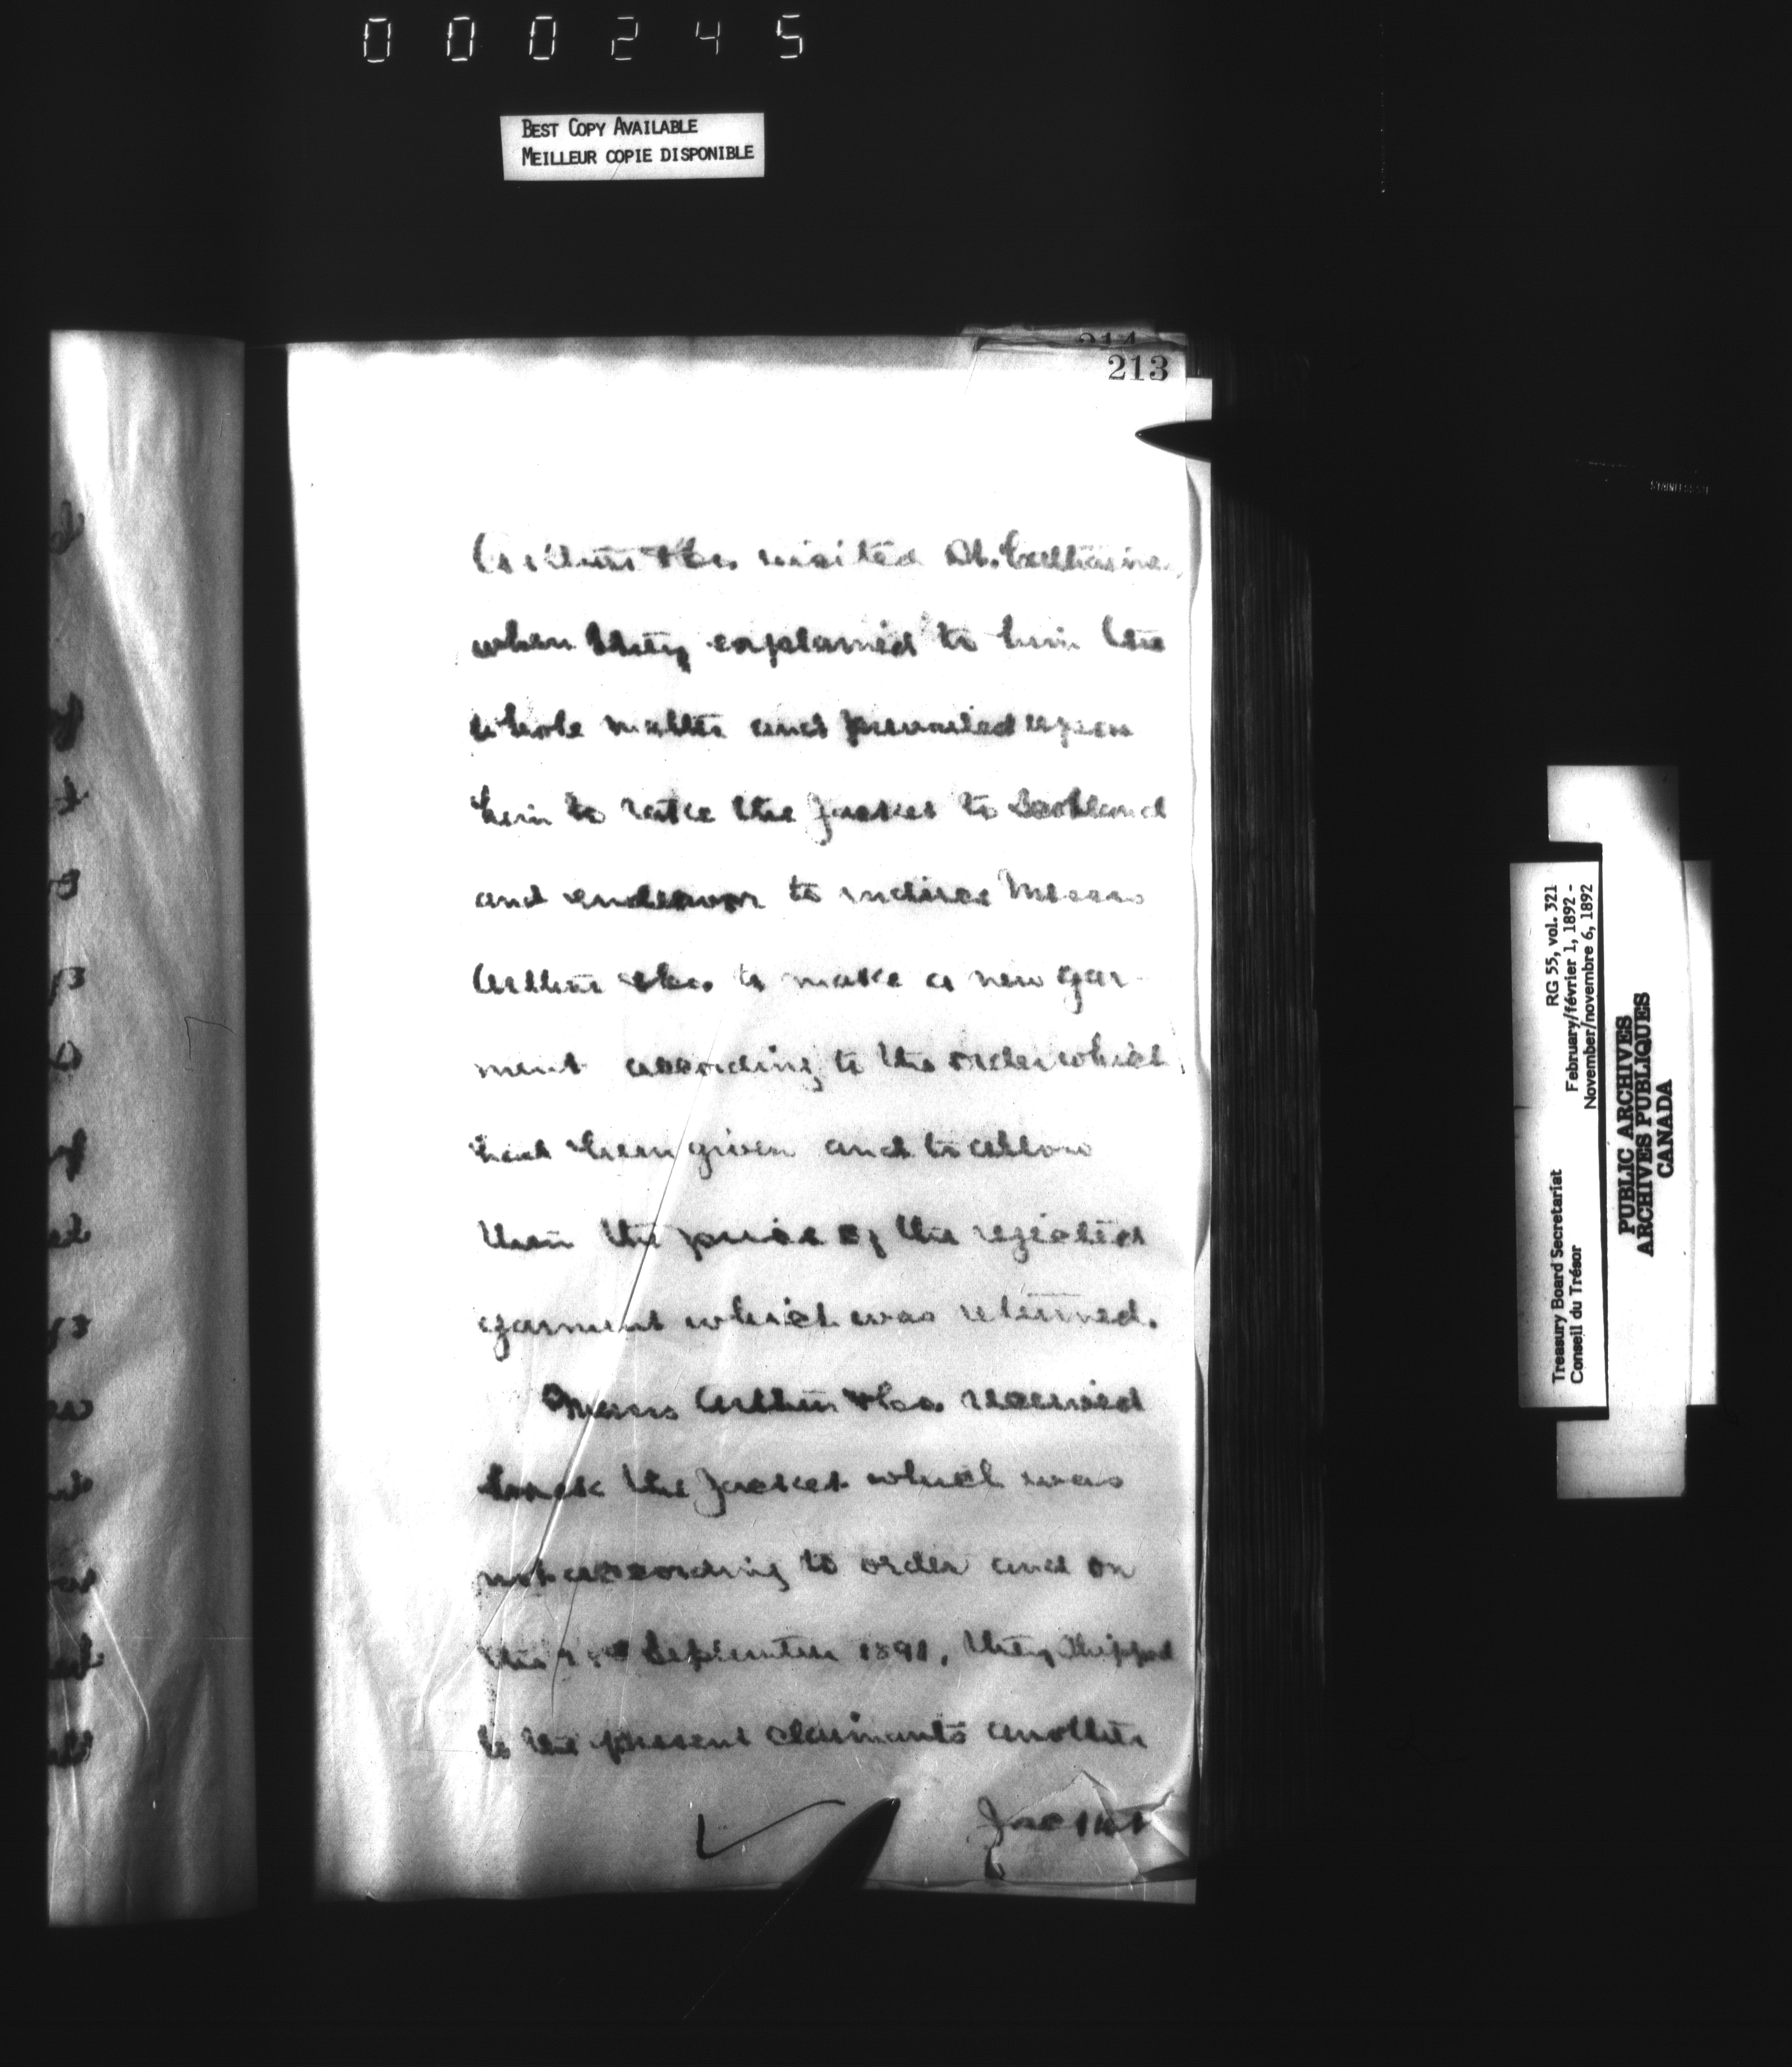 000245
BEST COPY AVAILABLE
MEILLEUR COPIE DISPONIBLE
214
213
Arthur & Co. visited St. Catharines
when they explained to him the
whole matter and prevailed upon
him to take the Jacket to Scotland
and endeavor to induce Messrs
Arthur & Co. to make a new gar-
ment according to the order which
had been given and to allow
them the price of the rejected
garment which was returned.
Messrs Arthur & Co. received
back the Jacket which was
not according to order and on
the September 1891, they shipped
to the present claimants another
Jacket
RG 55, vol. 321
February/février 1, 1892 -
November/novembre 6, 1892
Treasury Board Secretariat
Conseil du Trésor
PUBLIC ARCHIVES
ARCHIVES PUBLIQUES
CANADA